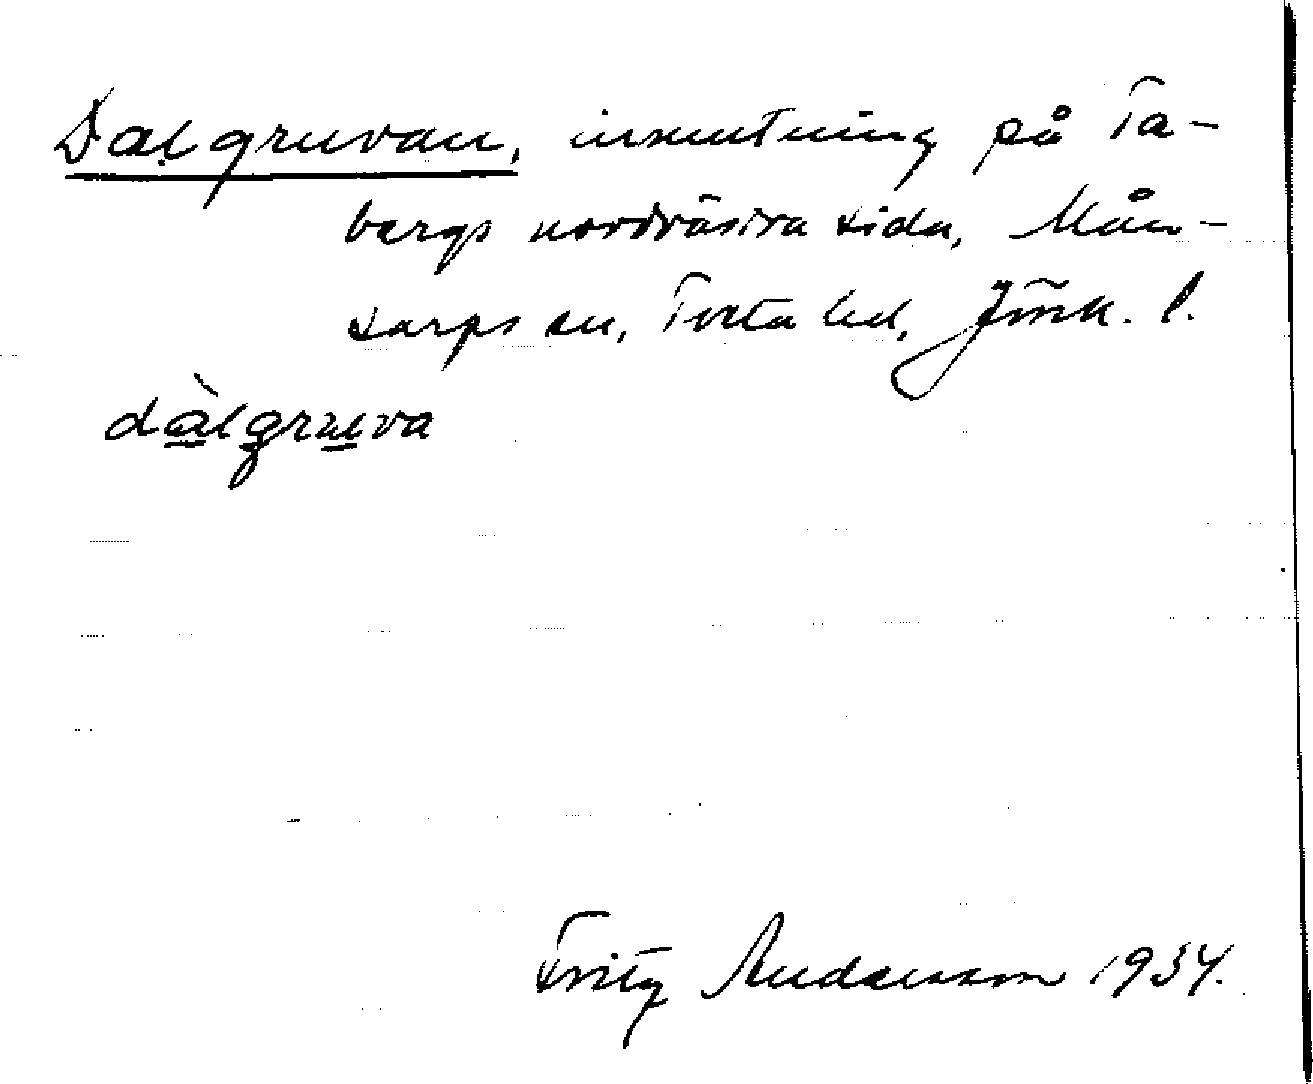 Dalgruvan, inmutning på Ta-
bergs nordvästra sida, Mån-
sarps sn, Tveta hd, Jönk. l.
dàlgruva
Fritz Andersson 1934.